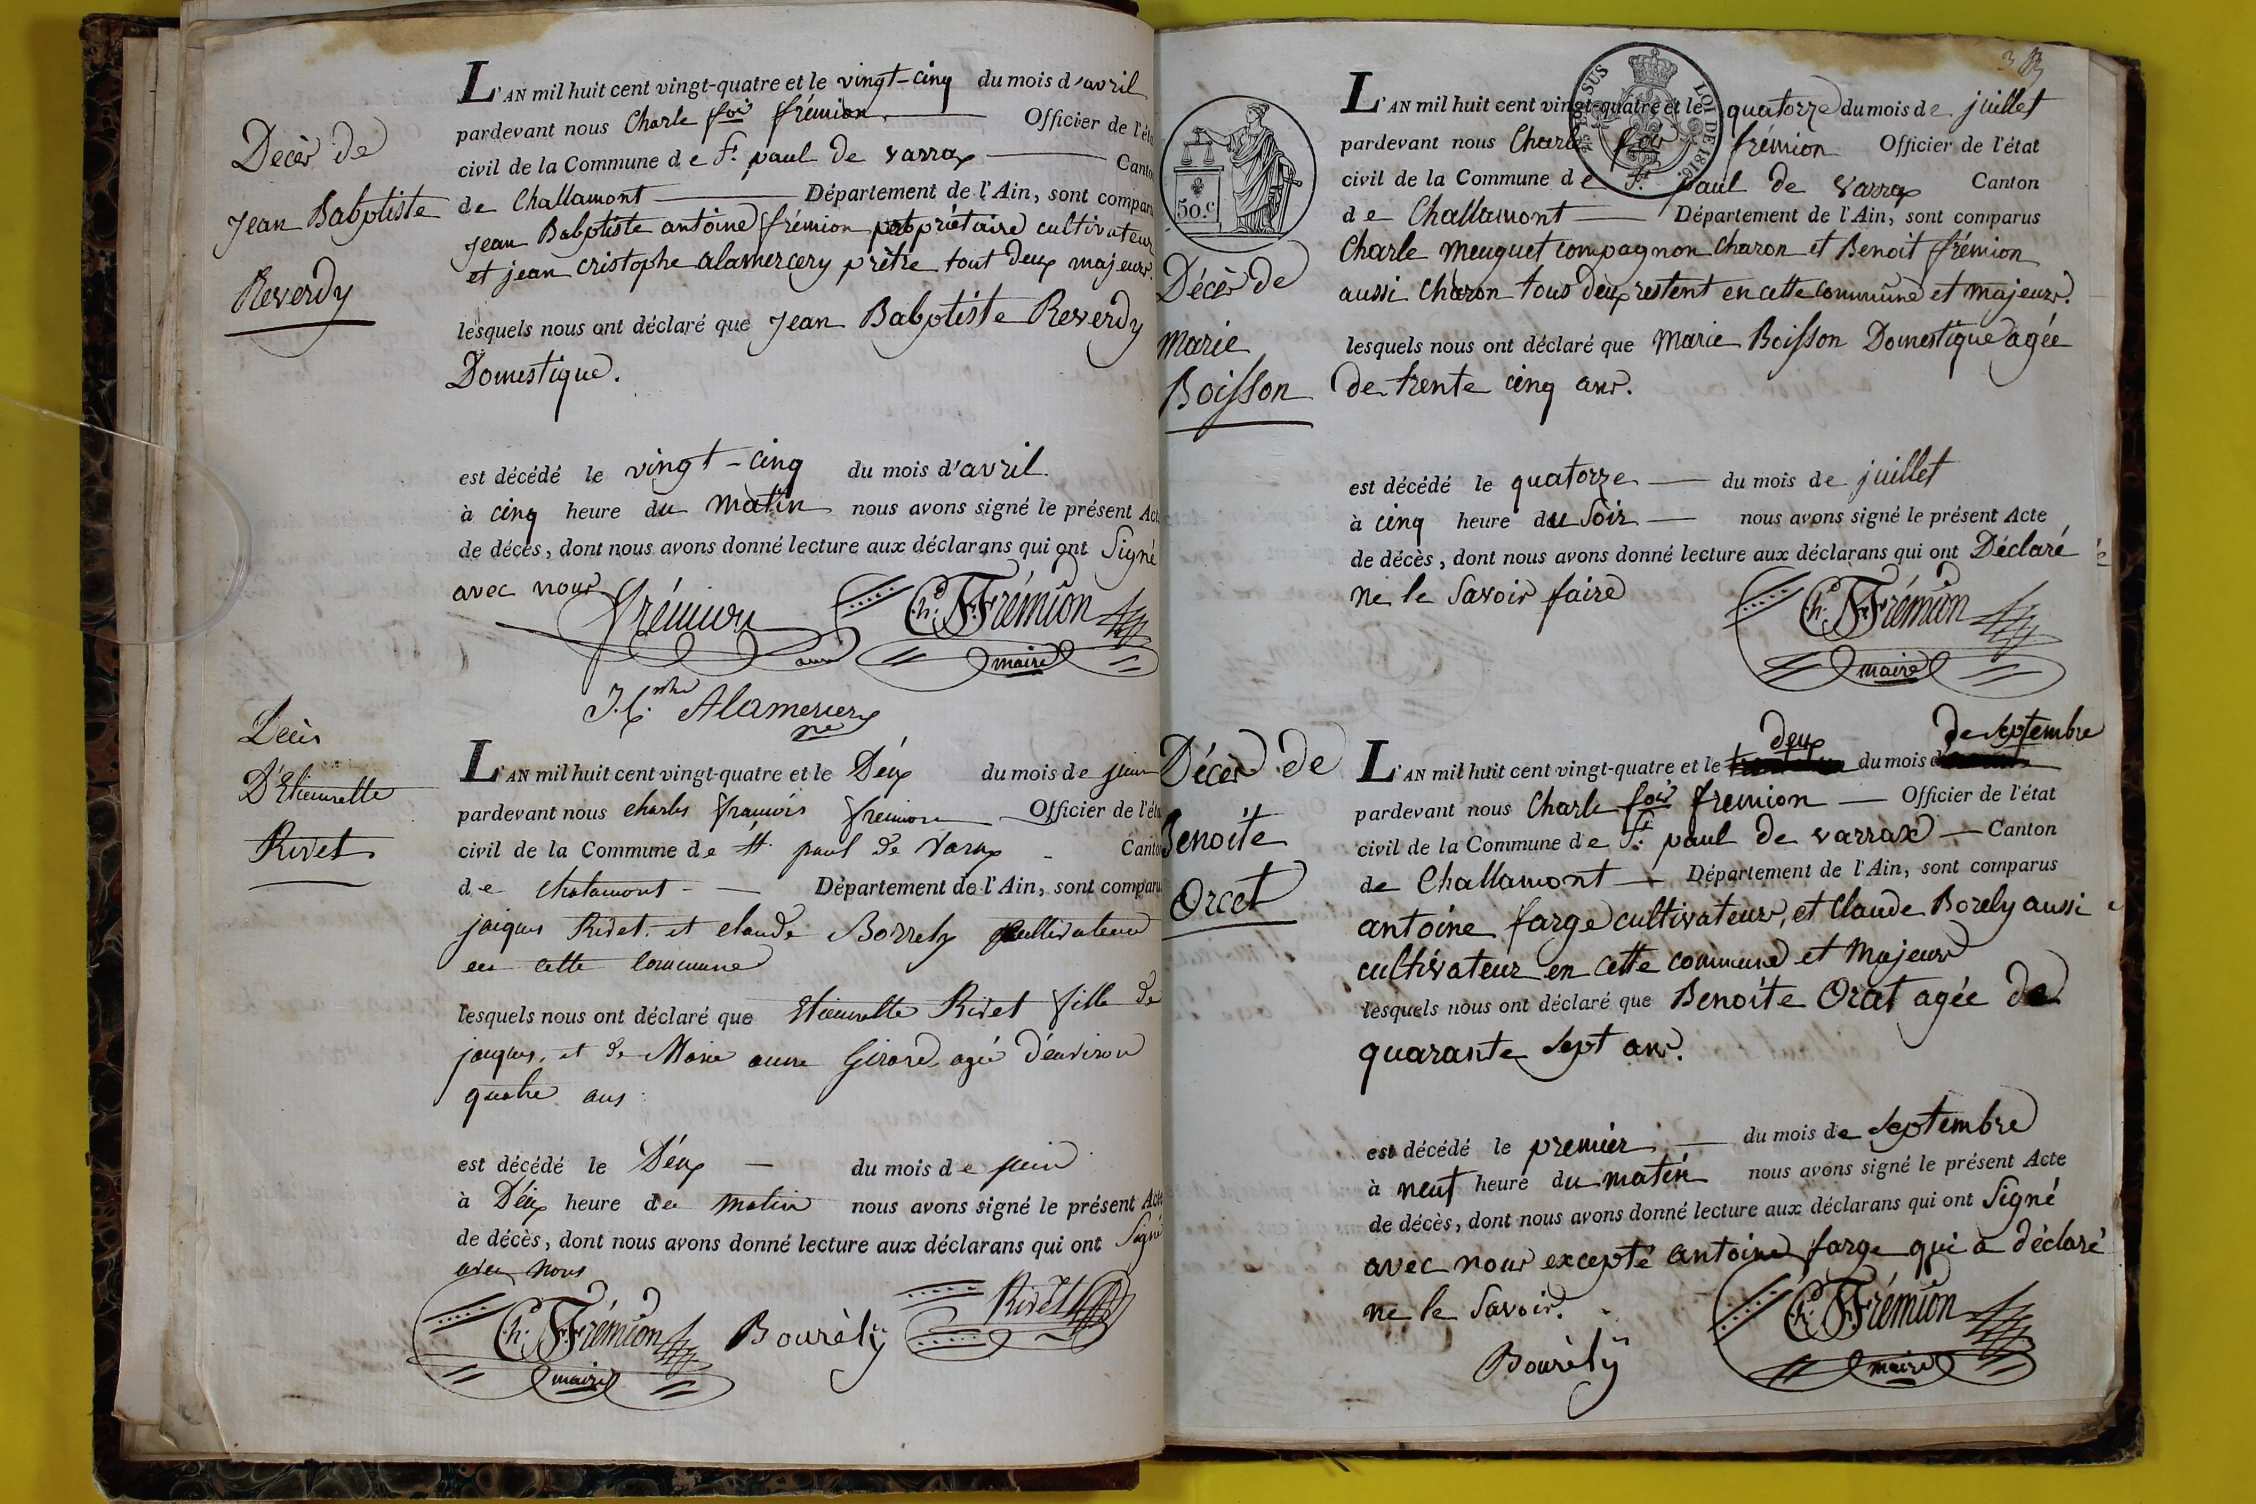 Décès de
Jean Babptiste
Reverdy
L'AN mil huit cent vingt-quatre et le vingt-cinq du mois d'avril
pardevant nous Charle fois frémion Officier de l'éta
civil de la Commune de St. paul de varrax Canto
de Challamont Département de l'Ain, sont compar
jean Babptiste antoine frémion propriétaire cultivateur
et jean cristophe alamercery prêtre tout deux majeurs.
lesquels nous ont déclaré que jean Babptiste Reverdy
Domestique.
est décédé le vingt-cinq du mois d'avril
à cinq heure du matin nous avons signé le présent Act
de décès, dont nous avons donné lecture aux déclarans qui ont Signé
avec nous
frémion
Ch. F. Frémion
maire
J. C. Alamercery
Décès
D'Etiennette
Rivet
L'AN mil huit cent vingt-quatre et le Déux du mois de juin
pardevant nous charles françois fremion Officier de l'éta
civil de la Commune de St. paul de Varax Canton
de Chatamont Département de l'Ain, sont comparu
jacques Rivet et claude Borrely cultivateur
en cette commune
lesquels nous ont déclaré que Etiennette Rivet fille de
jacques, et de Marie anne Girard agée d'environ
quatre ans
est décédé le Déux du mois de juin
à Déux heure du matin nous avons signé le présent Acte
de décès, dont nous avons donné lecture aux déclarans qui ont Signé
avec nous
Ch. F. Frémion
maire
Bourély
Rivet
50.c
EN SUS
LOI DE 1816
Décès de
marie
Boisson
L'AN mil huit cent vingt-quatre et le quatorze du mois de juillet
pardevant nous Charle fois frémion Officier de l'état
civil de la Commune de St. paul de varrax Canton
de Challamont Département de l'Ain, sont comparus
Charle meuguet compagnon charon et Benoit frémion
aussi charon tous deux restent en cette commune et majeurs.
lesquels nous ont déclaré que marie Boisson Domestique agée
de trente cinq ans.
est décédé le quatorze du mois de juillet
à cinq heure du Soir nous avons signé le présent Acte
de décès, dont nous avons donné lecture aux déclarans qui ont Déclaré
ne le Savoir faire
Ch. F. Frémion
maire
Décès de
Benoite
Orcet
deux de septembre
L'AN mil huit cent vingt-quatre et le du mois
pardevant nous Charle fois fremion Officier de l'état
civil de la Commune de St. paul de varrax Canton
de Challamont Département de l'Ain, sont comparus
antoine farge cultivateur, et Claude Borely aussi
cultivateur en cette commune et majeurs
lesquels nous ont déclaré que Benoite Orcet agée de
quarante Sept ans.
est décédé le premier du mois de septembre
à neuf heure du matin nous avons signé le présent Acte
de décès, dont nous avons donné lecture aux déclarans qui ont Signé
avec nous excepté antoine farge qui a déclaré
ne le Savoir.
Bourély
Ch. F. Frémion
maire